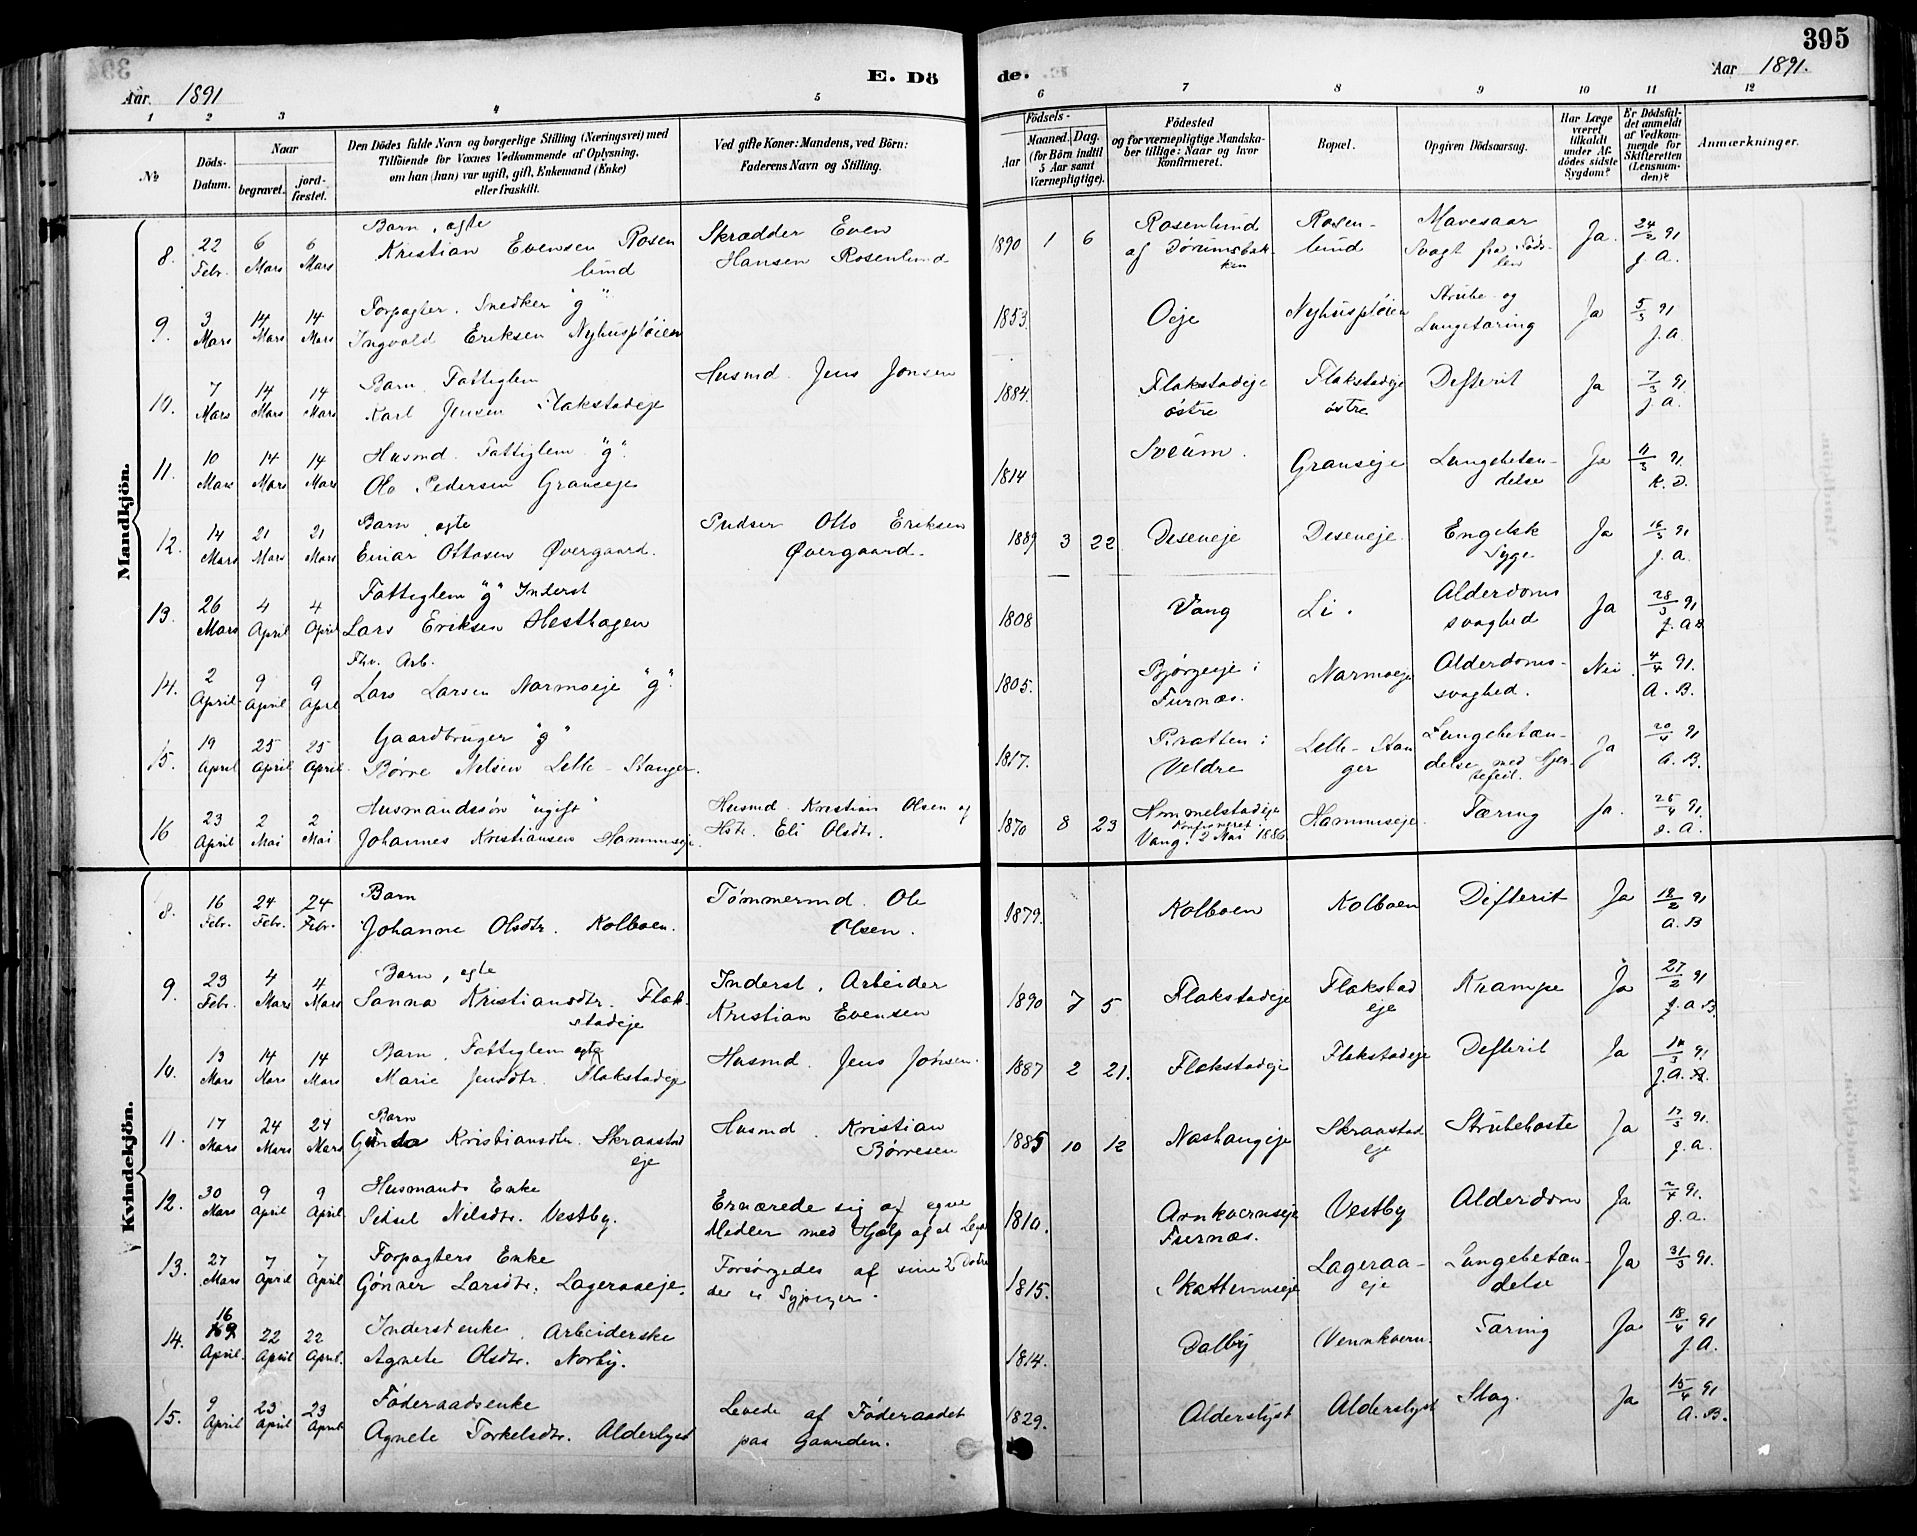 395
E. Döde.
Aar 1891
Aar 1891.
1 2 3 4 5 6 7 8 9 10 11 12
No
Döds-Datum.
Naar
begravet.
jord-fæstet.
Den Dödes fulde Navn og borgerlige Stilling (Næringsvei) med
Tilföiende for Voxnes Vedkommende af Oplysning,
om han (hun) var ugift, gift, Enkemand (Enke)
eller fraskilt.
Ved gifte Koner: Mandens, ved Börn:
Faderens Navn og Stilling.
Födsels-
Aar
Maaned. Dag.
(for Börn indtil
5 Aar samt
Værnepligtige).
Födested
og for værnepligtige Mandska-
ber tillige: Naar og hvor
konfirmeret.
Bopæl.
Opgiven Dödsaarsag.
Har Læge
været
tilkaldt
under Af-
dödes sidste
Sygdom?
Er Dödsfal-
det anmeldt
af Vedkom-
mende for
Skifteretten
(Lensman-
den)?
Anmærkninger.
Mandkjön.
8. 22 Febr. 6 Mars 6 Mars Barn, ægte Kristian Evensen Rosenlund Skrædder Even Hansen Rosenlund 1890 1 6 Rosenlund af Dørumsbakken Rosenlund Mavesaar Svagt fra Fødslen Ja. 24/2 91 J. A.
9. 3 Mars 14 Mars 14 Mars Forpagter. Snedker "g" Ingvald Eriksen Nyhuspløien 1853. Oeje Nyhuspløien Strube- og Lungetæring Ja 5/3 91 J. A.
10. 7 Mars 14 Mars 14 Mars Barn. Fattiglem Karl Jensen Flakstadeje Husmd. Jens Jonsen 1884. Flakstadeje østre Flakstadeje østre Defterit Ja 7/3 91 J. A.
11. 10 Mars 14 Mars 14 Mars Husmd. Fattiglem "g". Ole Pedersen Granseje 1814 Sveum. Granseje Lungebetændelse Ja 11/3 91. K. D.
12. 14 Mars 21 Mars 21 Mars Barn, ægte Einar Ottosen Øvergaard. Pudser Otto Eriksen Øvergaard. 1889 3 22 Deseneje Deseneje. Engelsk Syge. Ja 16/3 91 J. A.
13. 26 Mars 4 April 4 April Fattiglem "g" Inderst Lars Eriksen Hesthagen 1808 Vang Li. Alderdomssvaghed Ja 28/3 91 J. A B
14. 2 April 9 April 9 April Fhv. Arb. Lars Larsen Narmoeje "g". 1805. Bjørgeeje i Furnæs. Narmoeje Alderdomssvaghed. Nei. 4/4 91. A. B.
15. 19 April 25 April 25 April. Gaardbruger "g" Børre Nilsen Lille-Stanger. 1817. Pratten i Veldre Lille-Stanger Lungebetændelse med Hjertefeil. Ja 20/4 91 A. B.
16 23 April 2 Mai 2 Mai Husmandssøn "ugift" Johannes Kristiansen Hommseje. Husmd. Kristian Olsen og Hstr. Eli Olsdtr. 1870 8 23 Hommelstadeje Konfirmeret i Vang. 2 Mai 1886 Hommseje. Tæring Ja. 25/4 91. J. A.
Kvindekjön.
8. 16 Febr. 24 Febr. 24 Febr. Barn Johanne Olsdtr. Kolboen. Tømmermd. Ole Olsen. 1879. Kolboen Kolboen Difterit Ja 18/2 91 A. B
9. 23 Febr. 4 Mars 4 Mars Barn, ægte Sanna Kristiansdtr. Flakstadeje Inderst. Arbeider Kristian Evensen 1890 7 5 Flakstadeje Flakstadeje Krampe Ja 27/2 91 J. A B.
10. 13 Mars 14 Mars 14 Mars Barn. Fattiglem ægte Marie Jensdtr. Flakstadeje Husmd. Jens Jonsen. 1887 2 21. Flakstadeje Flakstadeje Defterit Ja 14/3 91. J. A. B.
11. 17 Mars 24 Mars 24 Mars Barn Kristiansdtr. Skraastadeje Husmd. Kristian Børresen 1885 10 12 Nashaugeje Skraastadeje Strubehoste Ja 17/3 91. J. A.
12. 30 Mars 9 April 9 April Husmands Enke Sidsel Nilsdtr. Vestby. Ernærede sig af egne Midler med Hjælp af et Legat 1810. Arnkvernseje Furnæs. Vestby Alderdom Ja 2/4 91. J. A.
13. 27 Mars 7 April 7 April Forpagters Enke Gønner Larsdtr. Lageraaeje. Forsørgedes af sine 2 Døtre der er Sypiger. 1815. Skattumseje Lageraaeje Lungebetændelse Ja 31/3 91.
14. 16 April. 22 April 22 April. Inderstenke, Arbeiderske Agnete Olsdtr. Norby. 1814. Dalby Vennkvern. Tæring Ja 18/4 91 J. A.
15. 9 April 23 April 23 April Føderaadsenke Agnete Torkelsdtr. Alderslyst Levede af Føderaadet paa Gaarden. 1829. Alderslyst Alderslyst Slag. Ja 15/4 91 A. B.